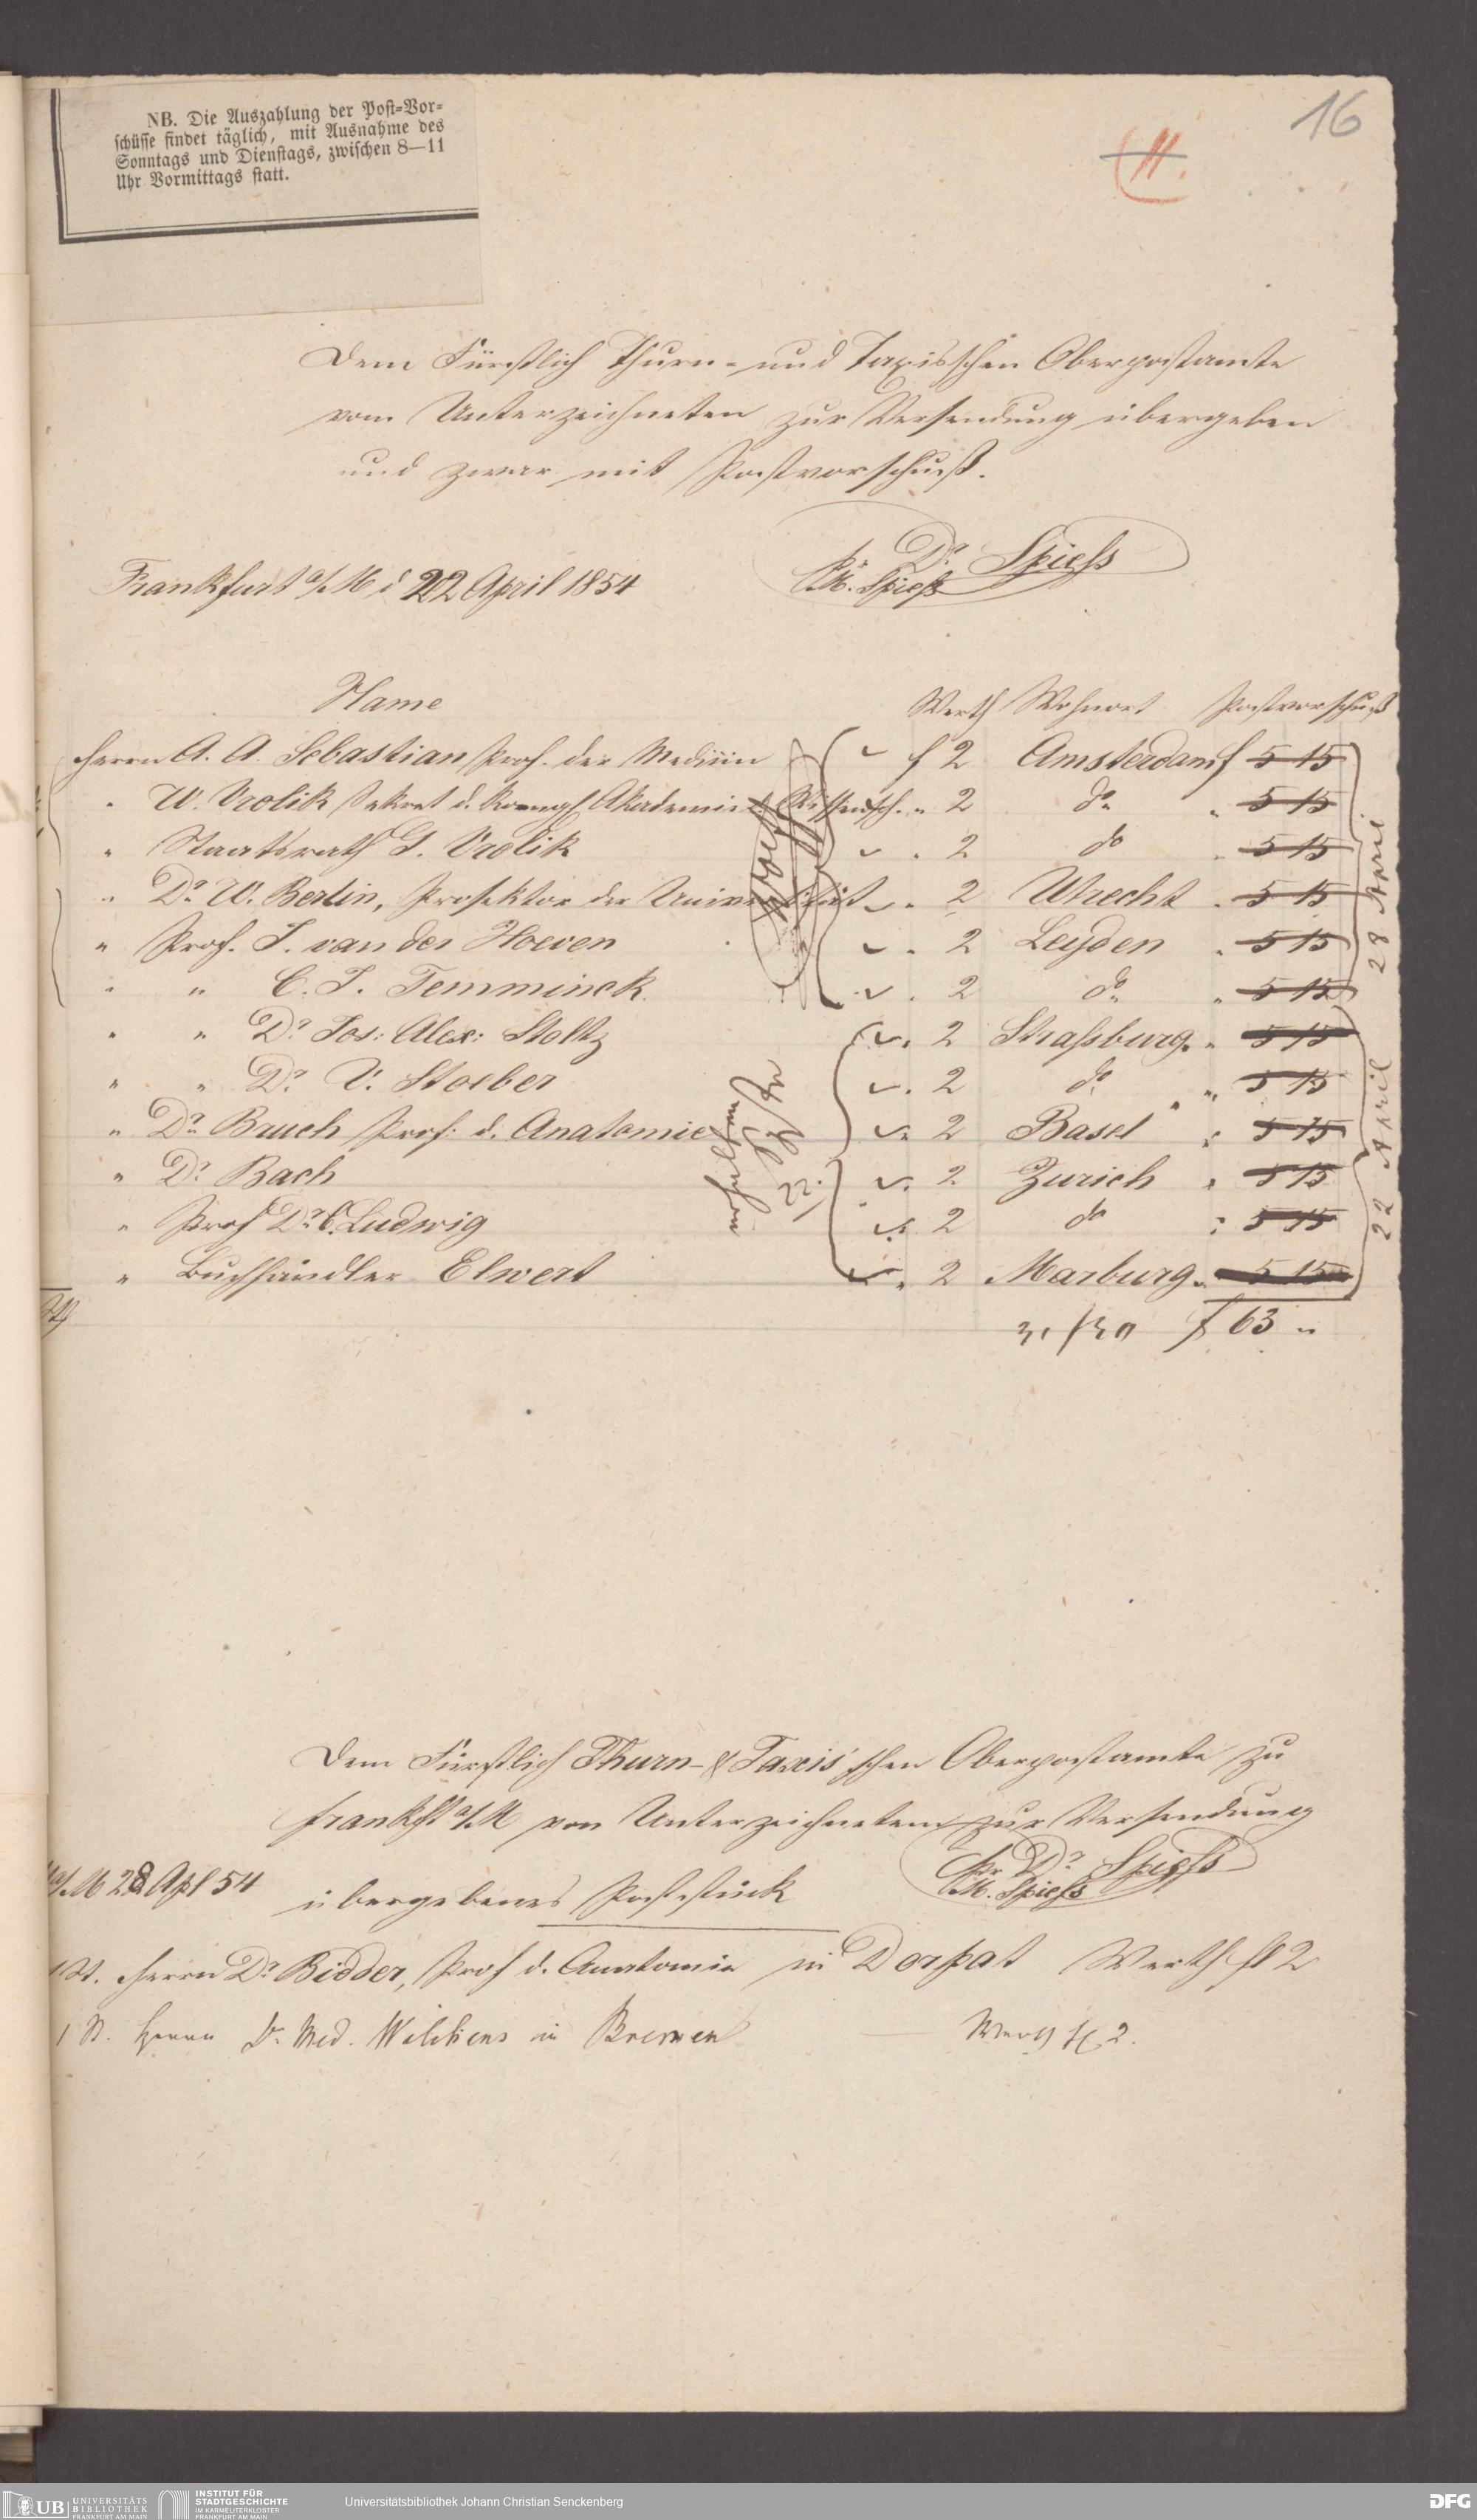 NB. Die Auszahlung der Post-Vor-
schüsse findet täglich, mit Ausnahme des
Sonntags und Dienstags, zwischen 8—11
Uhr Vormittags statt.
16
11.
Dem Fürstlich Thurn- und Taxisschen Oberpostamte
vom Unterzeichneten zur Versendung übergeben
und zwar mit Postvorschuß.
Dr. Spiess
Frankfurt a/M d 22 April 1854
M. Spieß
Name Werth Wohnort Postvorschuß
Herrn A. A. Sebastian Prof. der Medizin f 2 Amsterdam f 5 15
" W. Vrolik Sekret d. Koenigl. Akademie d. Wissensch. " 2 do " 5 15
" Staatsrath G. Vrolik " 2 do " 5 15
" Dr. W. Berlin, Prosektor der Universität " 2 Utrecht " 5 15
" Prof. J. van der Hoeven " 2 Leyden " 5 15
" " C. J. Temminck " 2 do " 5 15
28 April
" " Dr. Jos: Alex: Stoltz " 2 Straßburg " 5 15
" " Dr. V. Stoeber " 2 do " 5 15
" Dr. Bruch Prof: d. Anatomie " 2 Basel " 5 15
" Dr. Bach " 2 Zürich " 5 15
22.
" Prof Dr. C. Ludwig " 2 do " 5 15
" Buchhändler Elwert " 2 Marburg " 5 15
22 April
31/30 f 63 "
Dem Fürstlich Thurn- & Taxis'schen Oberpostamte zu
Frankft a/M von Unterzeichnetem zur Versendung
pr Dr. Spiess
a/M 28 Apl 54 übergebenes Poststück
M. Spiess
1 St. Herrn Dr. Bidder, Prof d. Anatomie in Dorpat Werth fl 2
1 St. Herrn Dr. Med. Wilckens in Bremen Werth fl 2.
UB UNIVERSITÄTS
BIBLIOTHEK
FRANKFURT AM MAIN
INSTITUT FÜR
STADTGESCHICHTE
IM KARMELITERKLOSTER
FRANKFURT AM MAIN
Universitätsbibliothek Johann Christian Senckenberg
DFG